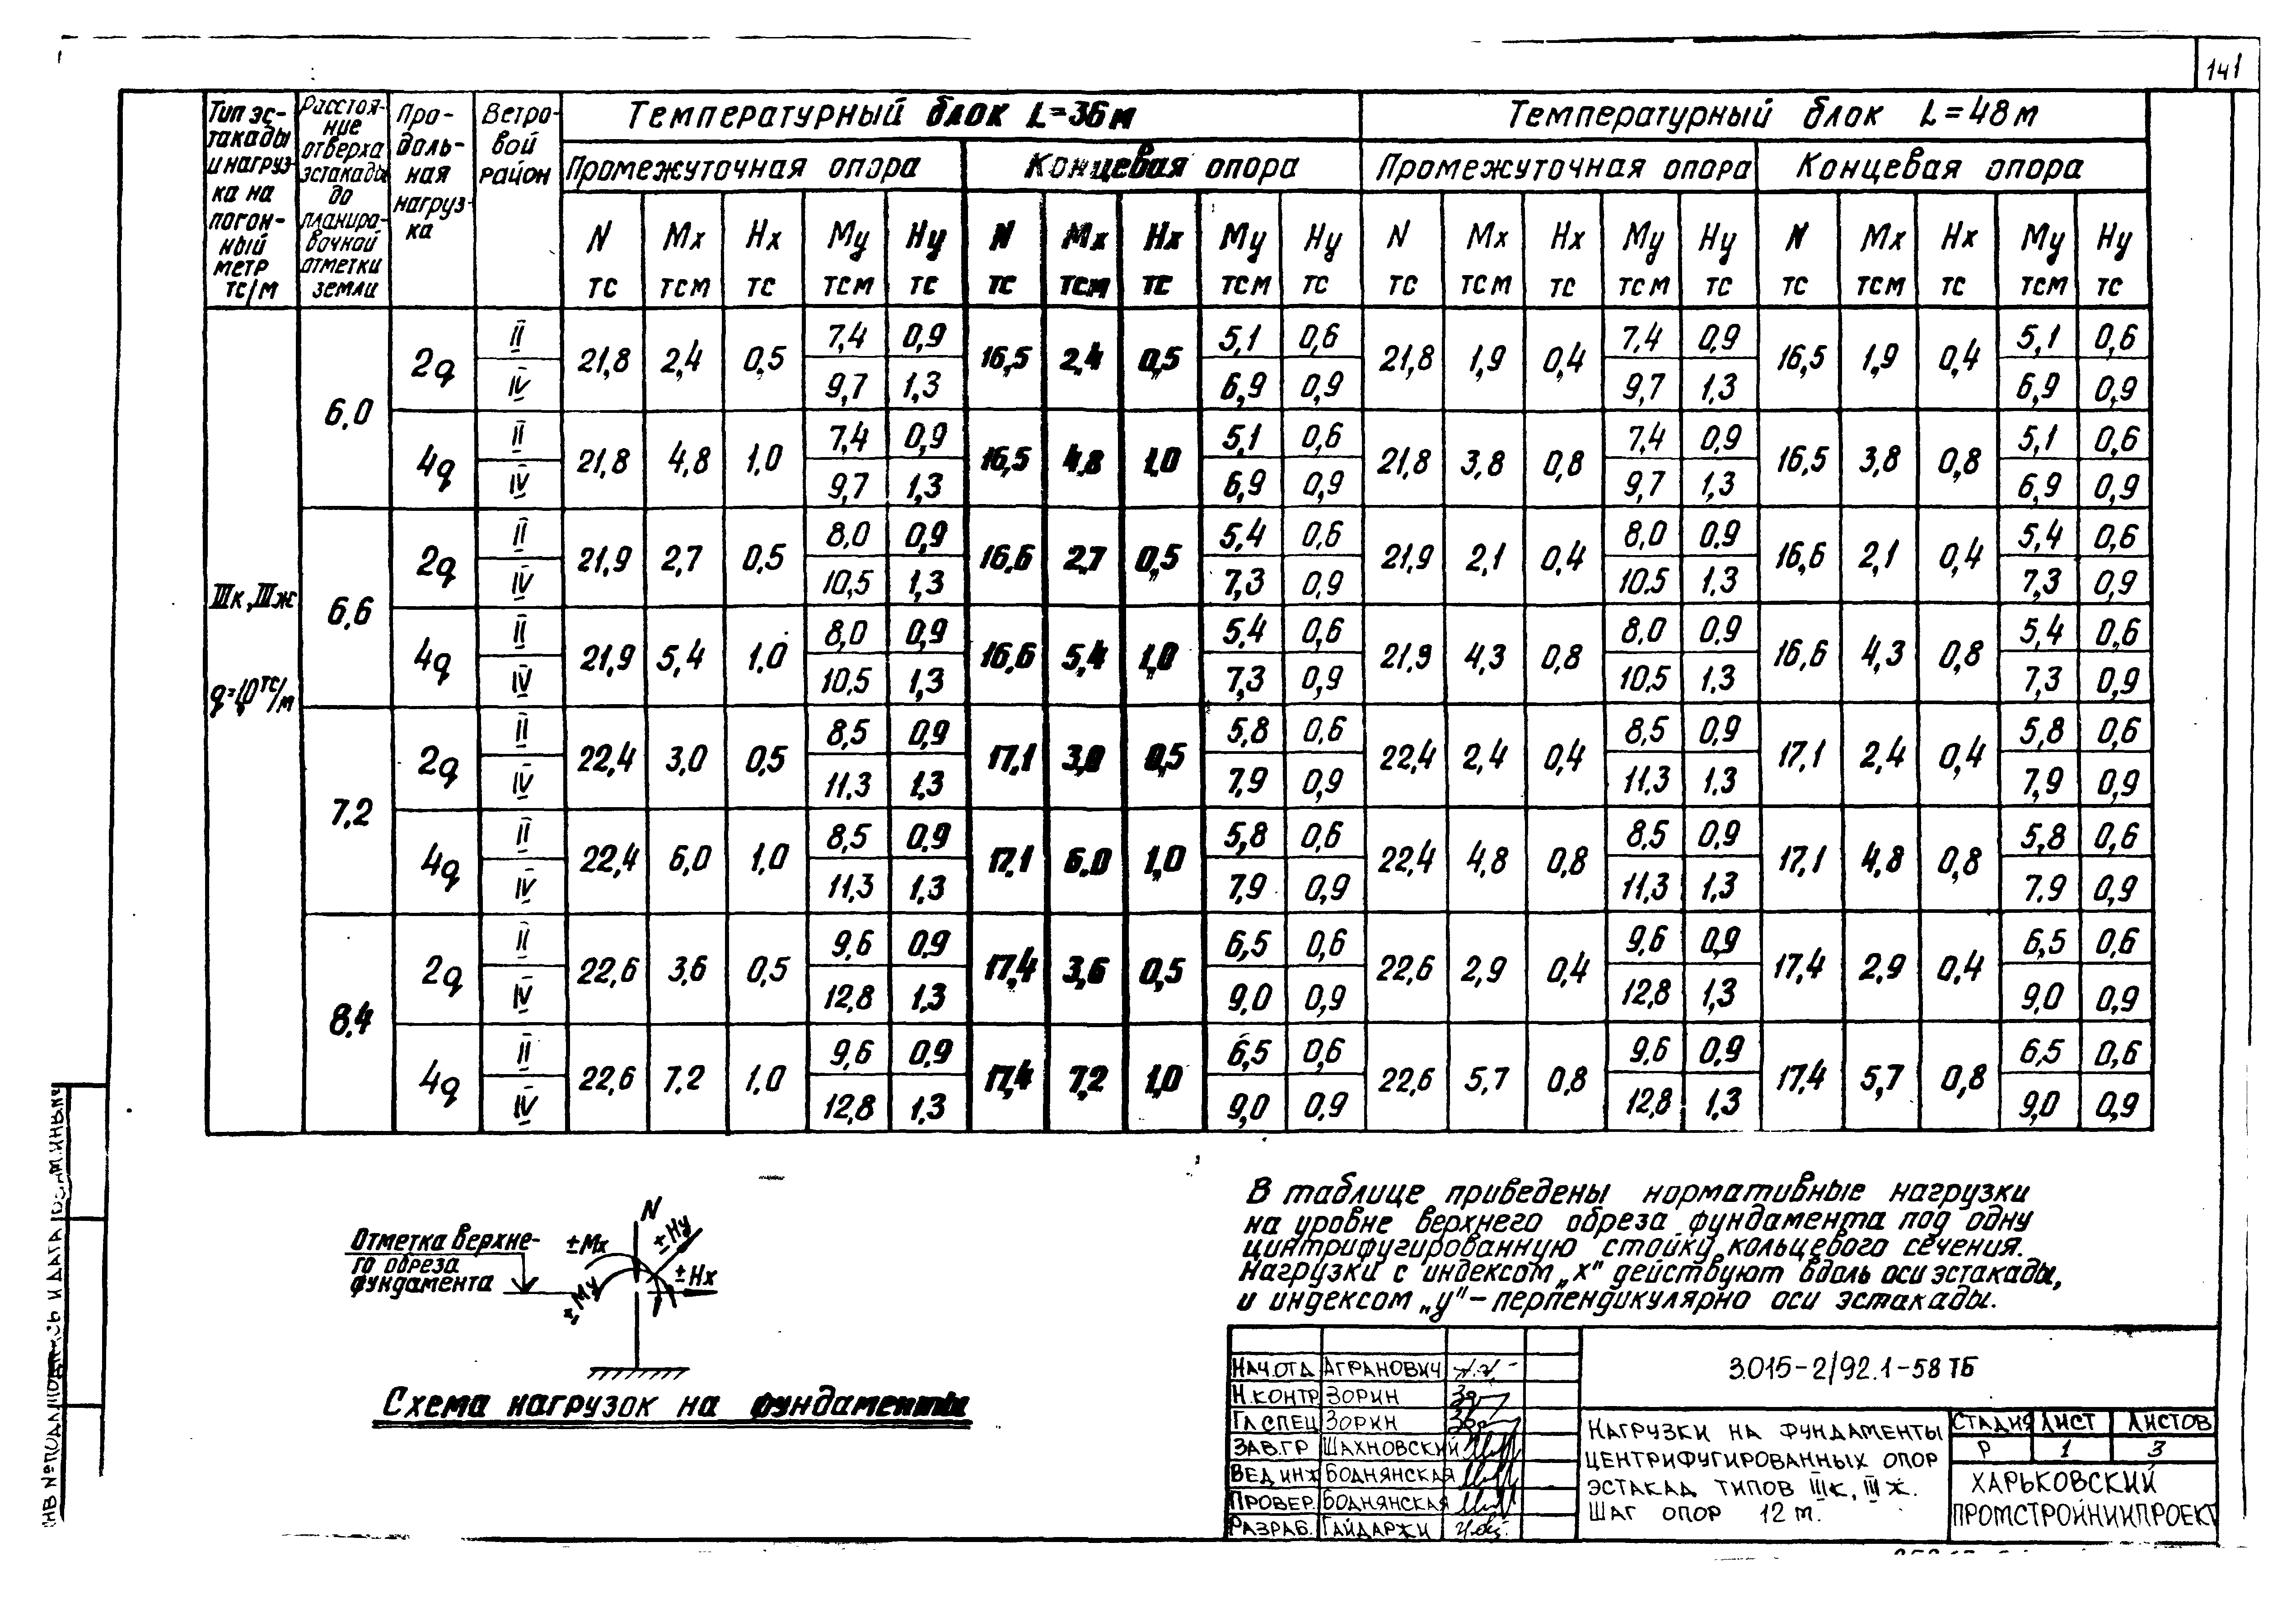 141
Тип эс-
такады
и нагруз-
ка на
погон-
ный
метр
тс/м
Расстоя-
ние
отверха
эстакады
до
планиро-
вочной
отметки
земли
Про-
доль-
ная
нагруз-
ка
Ветро-
вой
район
Температурный блок L=36м
Температурный блок L=48м
Промежуточная опора
Концевая опора
Промежуточная опора
Концевая опора
N Mx Hx My Hy N Mx Hx My Hy N Mx Hx My Hy N Mx Hx My Hy
тс тсм тс тсм тс тс тсм тс тсм тс тс тсм тс тсм тс тс тсм тс тсм тс
IIIк, IIIж
q=1,0 тс/м
6,0
2q II 21,8 2,4 0,5 7,4 0,9 16,5 2,4 0,5 5,1 0,6 21,8 1,9 0,4 7,4 0,9 16,5 1,9 0,4 5,1 0,6
IV 9,7 1,3 6,9 0,9 9,7 1,3 6,9 0,9
4q II 21,8 4,8 1,0 7,4 0,9 16,5 4,8 1,0 5,1 0,6 21,8 3,8 0,8 7,4 0,9 16,5 3,8 0,8 5,1 0,6
IV 9,7 1,3 6,9 0,9 9,7 1,3 6,9 0,9
6,6
2q II 21,9 2,7 0,5 8,0 0,9 16,6 2,7 0,5 5,4 0,6 21,9 2,1 0,4 8,0 0.9 16,6 2,1 0,4 5,4 0,6
IV 10,5 1,3 7,3 0,9 10.5 1,3 7,3 0,9
4q II 21,9 5,4 1,0 8,0 0,9 16,6 5,4 1,0 5,4 0,6 21,9 4,3 0,8 8,0 0.9 16,6 4,3 0,8 5,4 0,6
IV 10,5 1,3 7,3 0,9 10,5 1,3 7,3 0,9
7,2
2q II 22,4 3,0 0,5 8,5 0,9 17,1 3,0 0,5 5,8 0,6 22,4 2,4 0,4 8,5 0,9 17,1 2,4 0,4 5,8 0,6
IV 11,3 1,3 7,9 0,9 11,3 1,3 7,9 0,9
4q II 22,4 6,0 1,0 8,5 0,9 17,1 6,0 1,0 5,8 0,6 22,4 4,8 0,8 8,5 0,9 17,1 4,8 0,8 5,8 0,6
IV 11,3 1,3 7,9 0,9 11,3 1,3 7,9 0,9
8,4
2q II 22,6 3,6 0,5 9,6 0,9 17,4 3,6 0,5 6,5 0,6 22,6 2,9 0,4 9,6 0,9 17,4 2,9 0,4 6,5 0,6
IV 12,8 1,3 9,0 0,9 12,8 1,3 9,0 0,9
4q II 22,6 7,2 1,0 9,6 0,9 17,4 7,2 1,0 6,5 0,6 22,6 5,7 0,8 9,6 0,9 17,4 5,7 0,8 6,5 0,6
IV 12,8 1,3 9,0 0,9 12,8 1,3 9,0 0,9
Отметка верхне-
го обреза
фундамента
N
±Mx
±Hy
±My
±Hx
Схема нагрузок на фундаменты
В таблице приведены нормативные нагрузки
на уровне верхнего обреза фундамента под одну
цинтрифугированную стойку кольцевого сечения.
Нагрузки с индексом „x" действуют вдоль оси эстакады,
и индексом „y" – перпендикулярно оси эстакады.
3.015-2/92.1-58 ТБ
Нач.отд Агранович
Н.контр Зорин
Гл.спец Зорин
Зав.гр Шахновский
Вед.инж Боднянская
Провер. Боднянская
Разраб. Гайдаржи
Нагрузки на фундаменты
центрифугированных опор
эстакад типов IIIк, IIIж.
Шаг опор 12 м.
Стадия Лист Листов
Р 1 3
Харьковский
Промстройниипроект
Инв № подл Подпись и дата Взам.инв.№